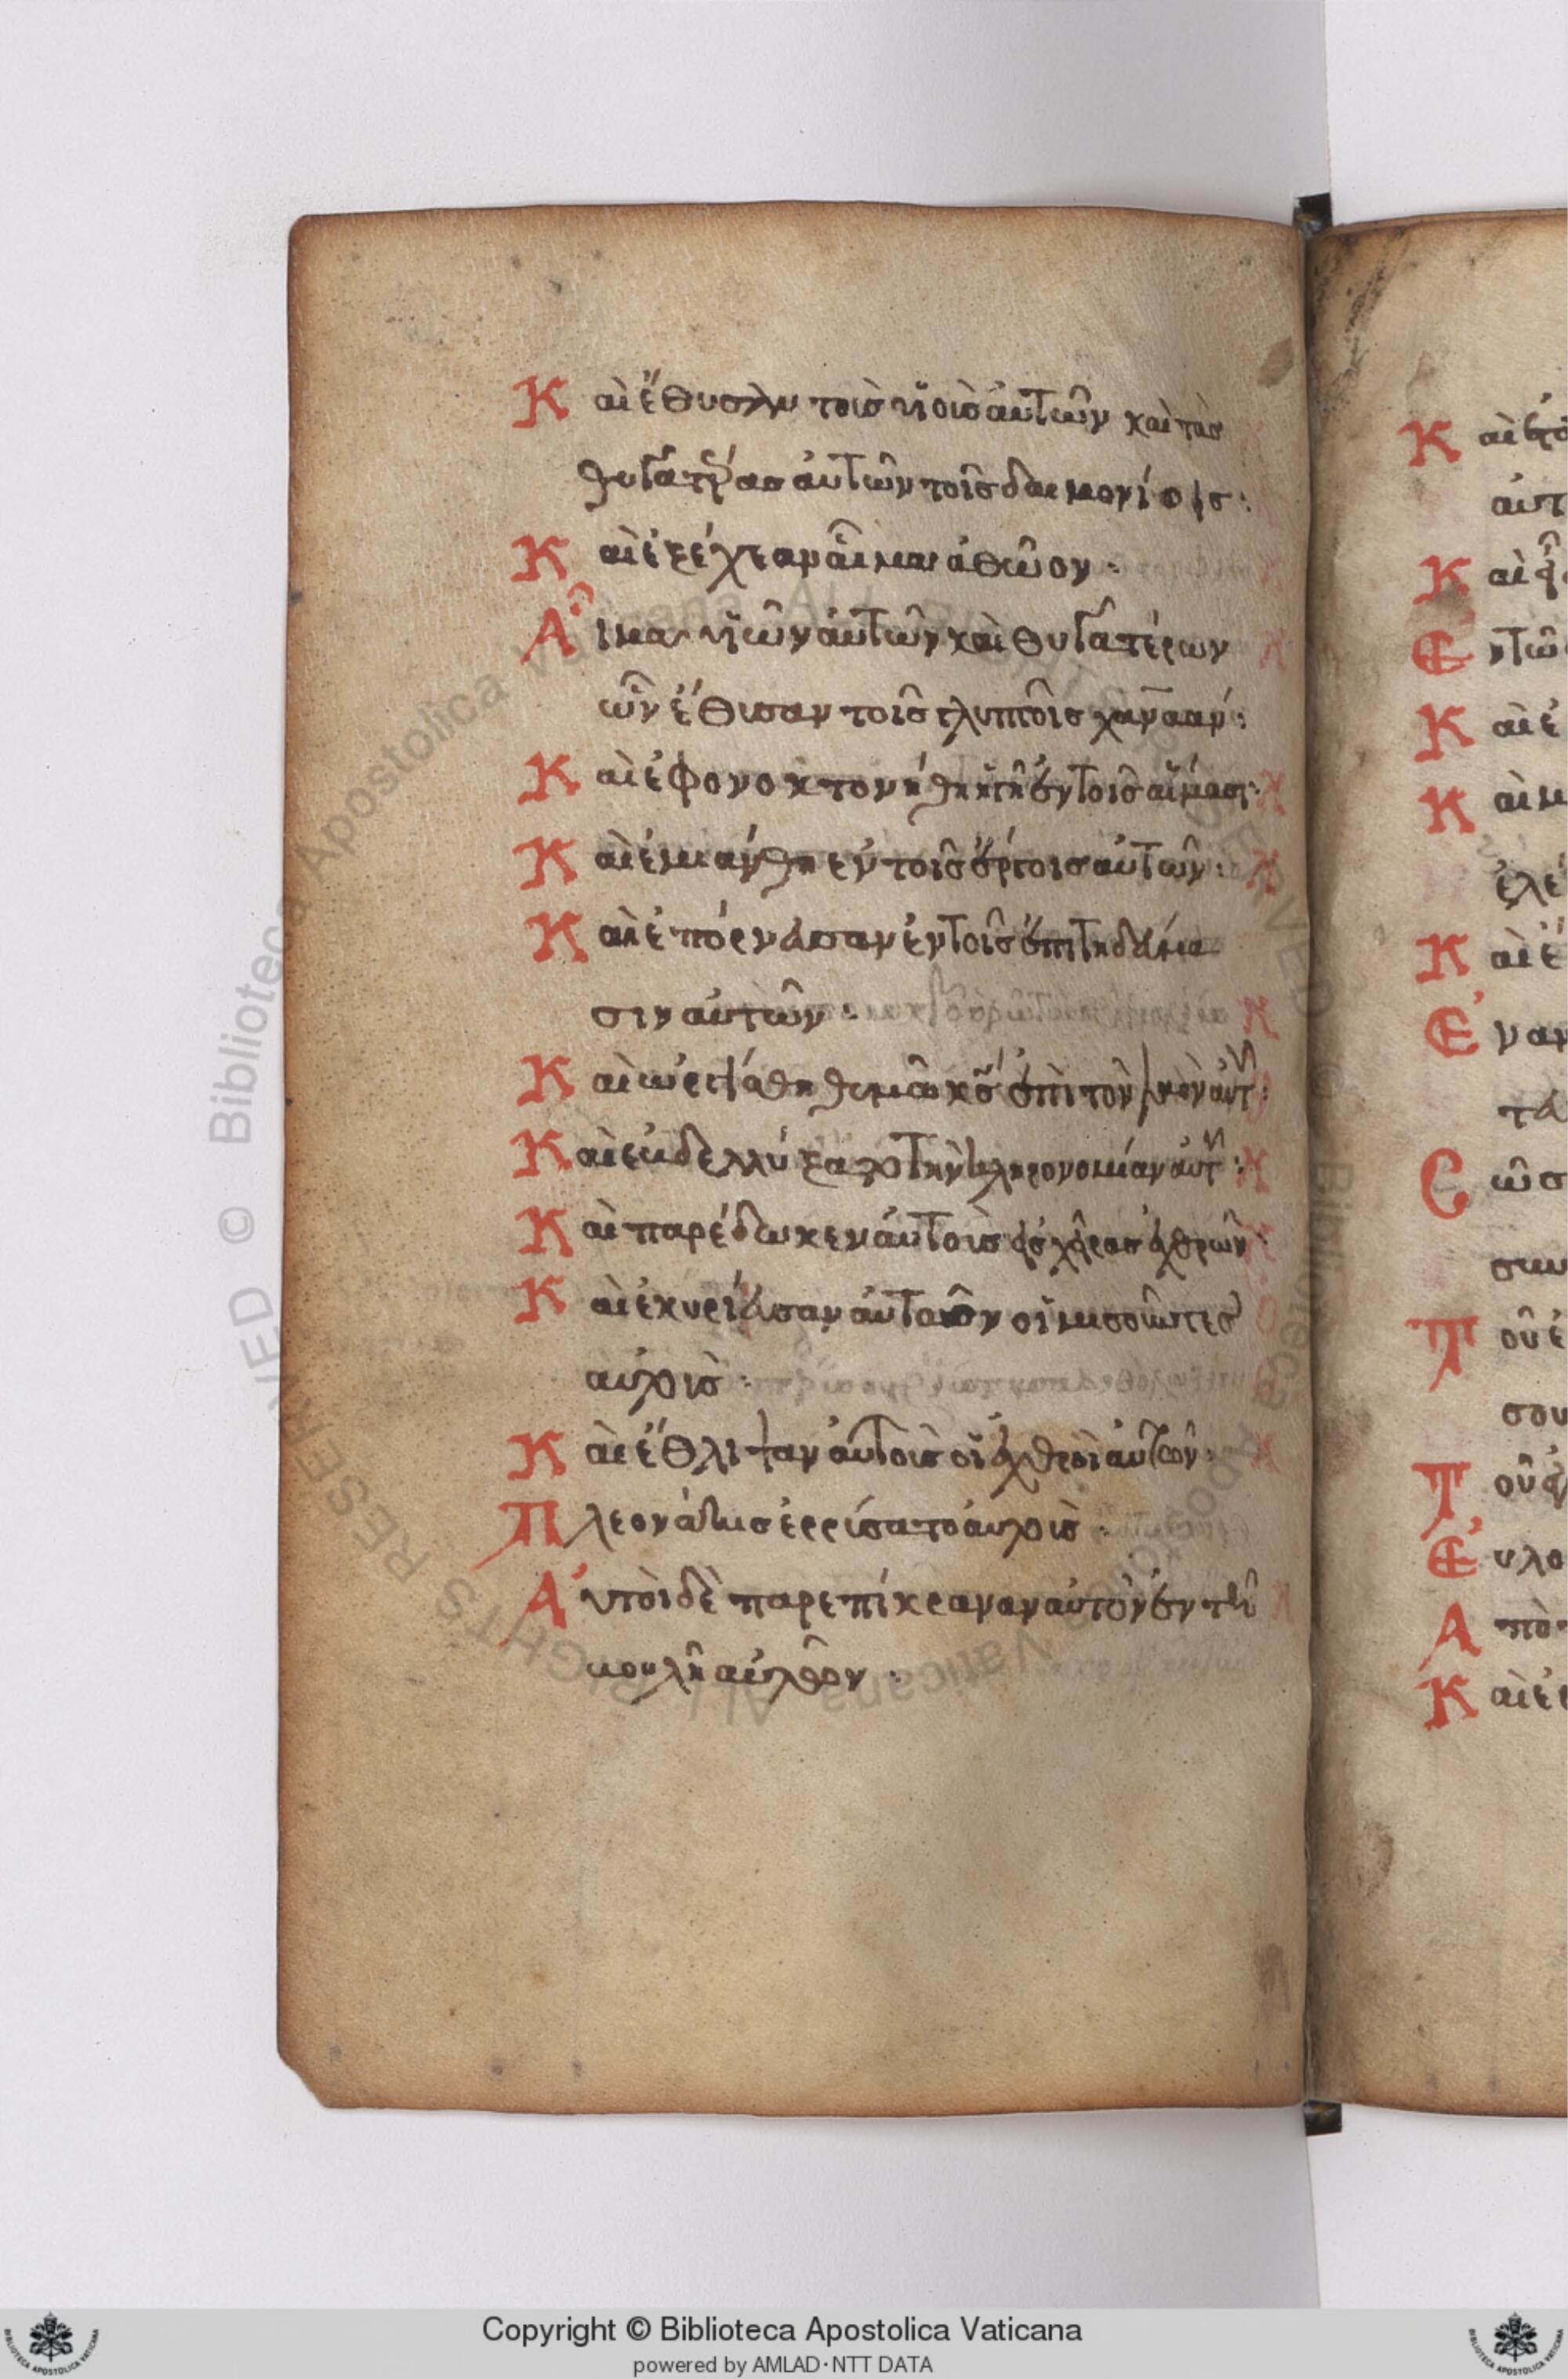 Καὶ ἔθυσαν τοὶς υἱοὶς αὐτῶν καὶ τὰς
θυγατέρας αὐτῶν τοῖς δαιμονίοις:
Καὶ ἐξέχεαν αἷμα ἀθῶον:
Αἷμα υἱῶν αὐτῶν καὶ θυγατέρων
ὧν ἔθισαν τοῖς γλυπτοῖς χαναάν:
Καὶ ἐφονοκτονήθη ἡ γῆ ἐν τοῖς αἵμασι:
Καὶ ἐμιάνθη ἐν τοῖς ἔργοις αὐτῶν:
Καὶ ἐπόρνευσαν ἐν τοῖς ἐπιτηδεύμα
σιν αὐτῶν:
Καὶ ὠργίσθη θυμῶ κς ἐπὶ τὸν λαὸν αὐτ:
Καὶ ἐβδελλύξατο τὴν κληρονομίαν αὐτ:
Καὶ παρέδωκεν αὐτοὶς εἰς χεῖρας ἐχθρῶν:
Καὶ ἐκυρίευσαν αὐτῶν οἱ μισοῦντες
αὐτοὶς:
Καὶ ἔθλιψαν αὐτοὶς οἱ ἐχθροὶ αὐτῶν:
Πλεονάκις ἐρρίσατο αὐτοὶς:
Αὐτοὶ δὲ παρεπίκραναν αὐτὸν ἐν τῆ
βουλῆ αὐτῶν:
Copyright © Biblioteca Apostolica Vaticana
powered by AMLAD·NTT DATA